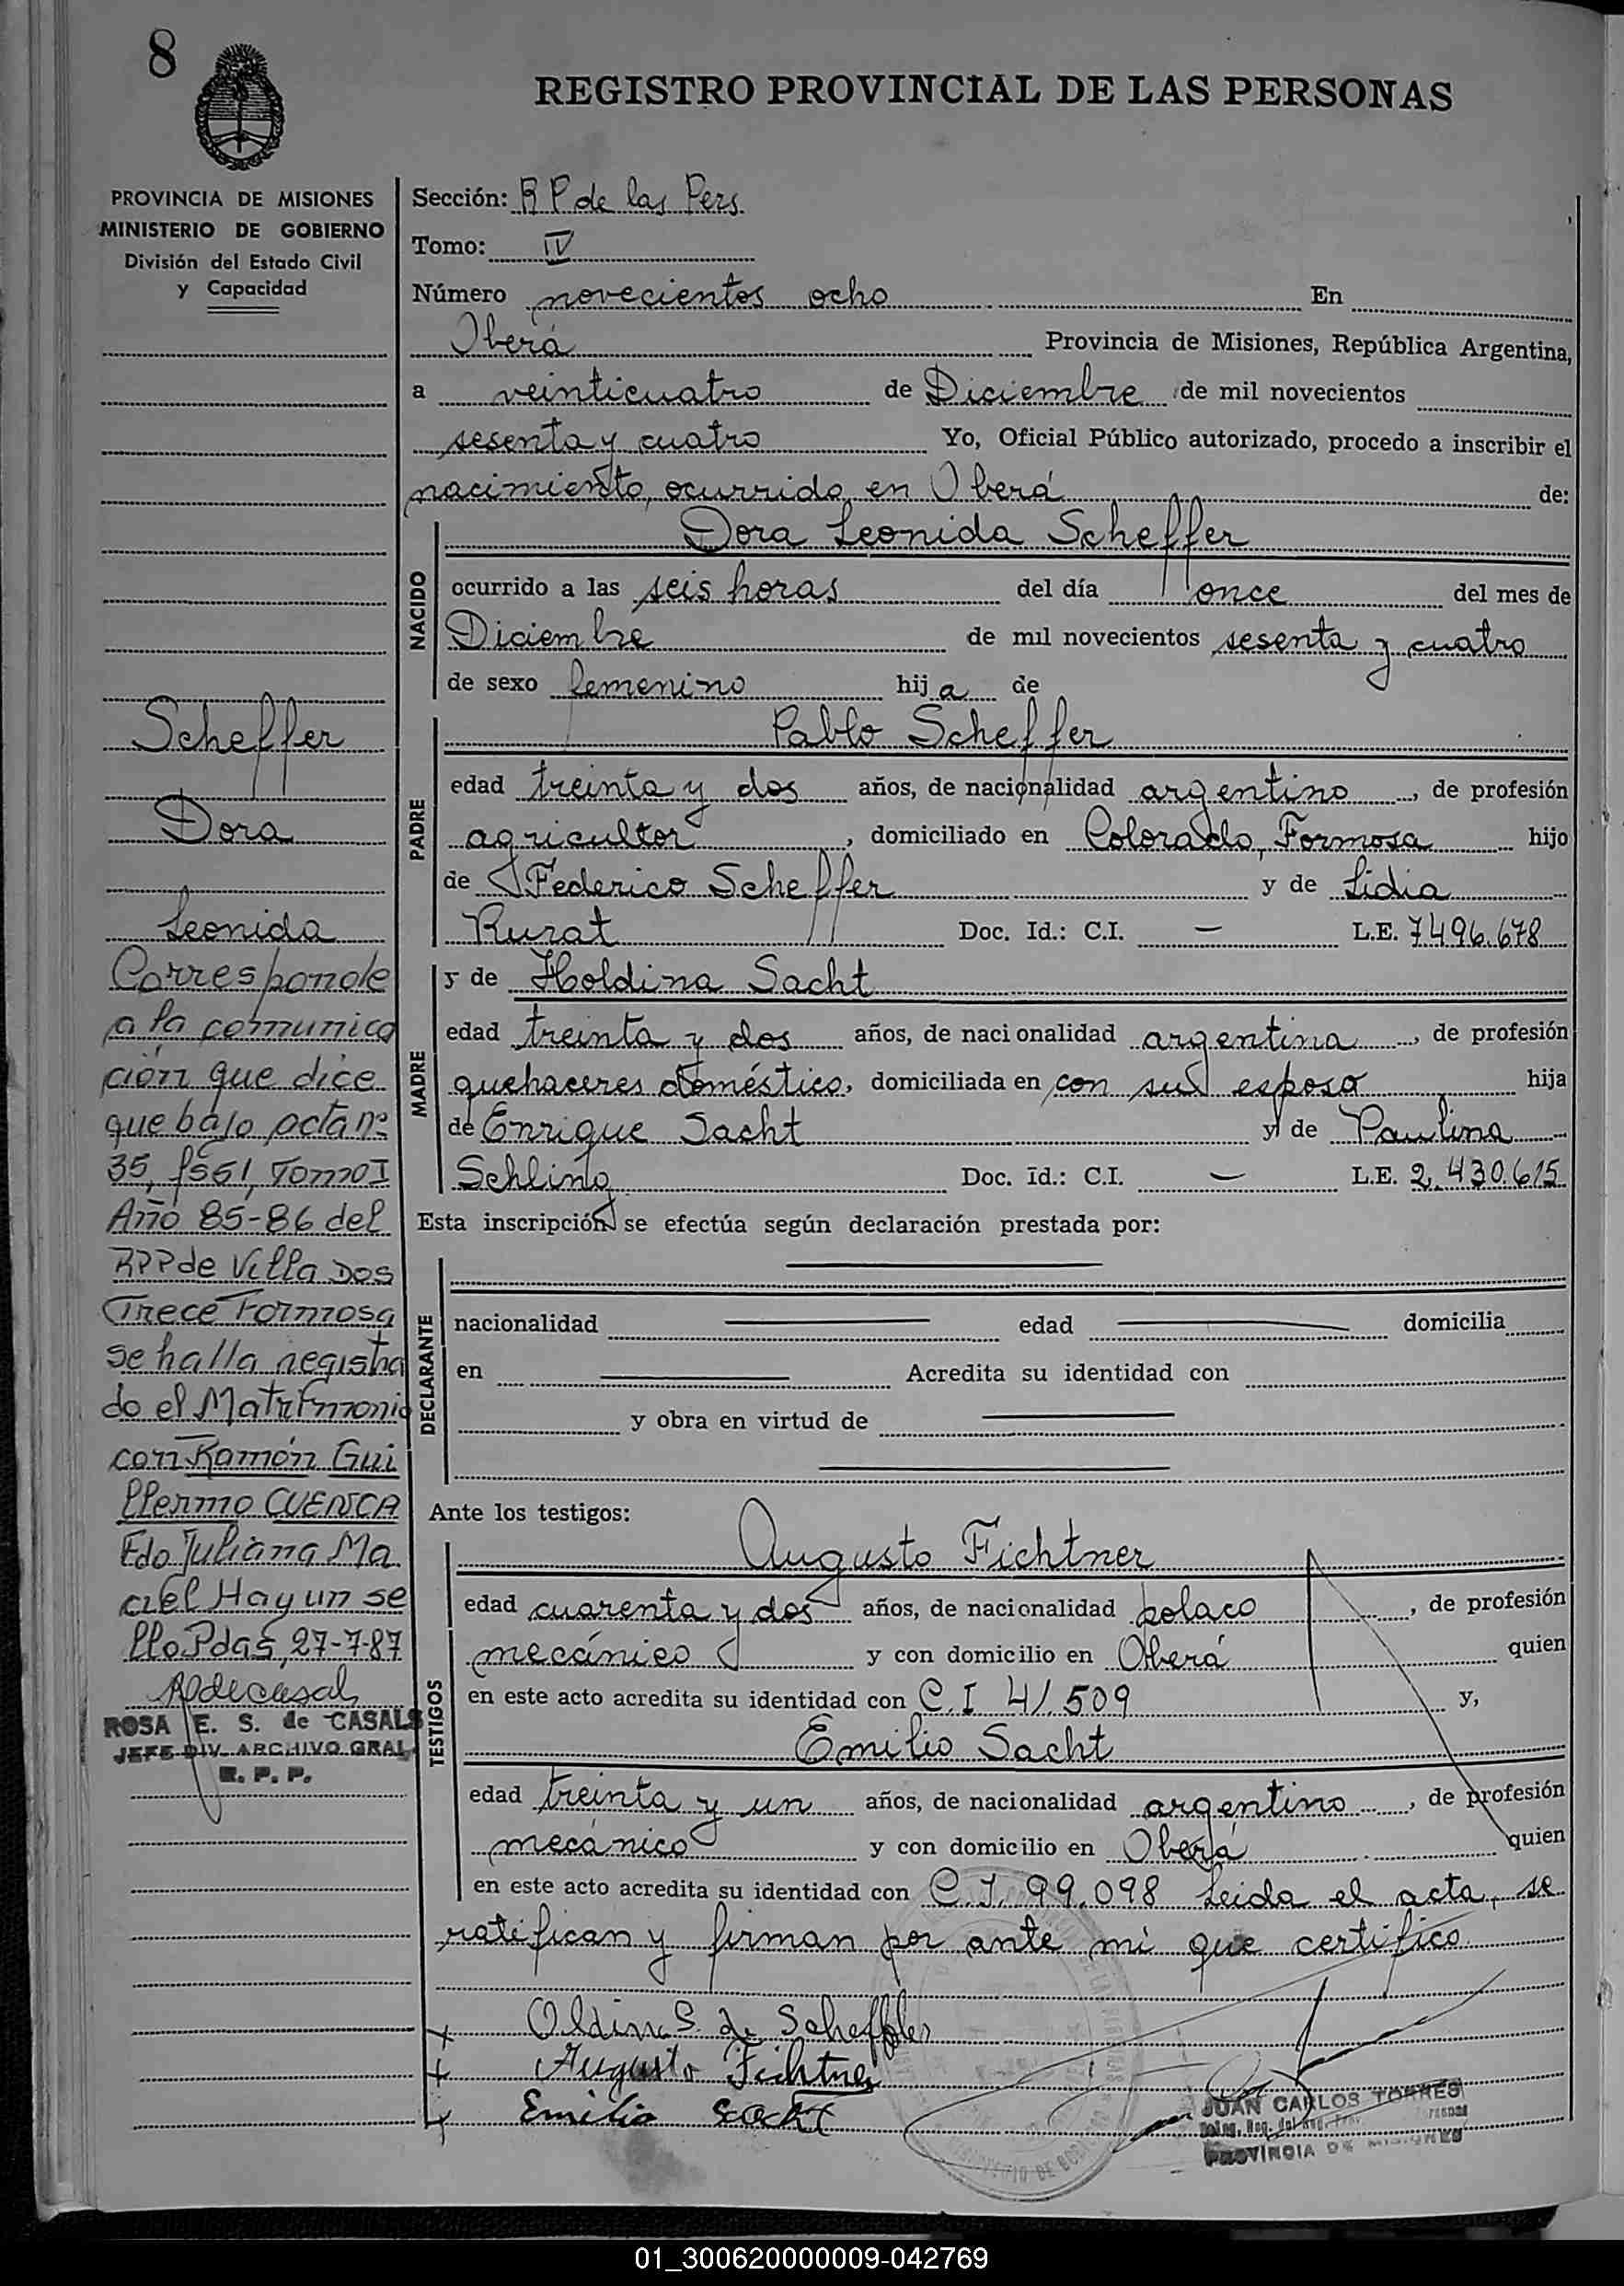 8
REGISTRO PROVINCIAL DE LAS PERSONAS
PROVINCIA DE MISIONES
MINISTERIO DE GOBIERNO
División del Estado Civil
y Capacidad
Scheffer
Dora
Leonida
Corresponde
a la comunica
ción que dice
que bajo acta nº
35, fs 61, Tomo I
Año 85-86 del
RPP de Villa Dos
Trece Formosa
se halla registra
do el Matrimonio
con Ramón Gui
llermo CUENCA
Fdo Juliana Ma
ciel Hay un se
llo Pdas, 27-7-87
ROSA E. S. de CASALS
JEFE DIV. ARCHIVO GRAL
R. P. P.
Sección: R P de las Pers.
Tomo: IV
Número novecientos ocho En
Oberá Provincia de Misiones, República Argentina,
a veinticuatro de Diciembre de mil novecientos
sesenta y cuatro Yo, Oficial Público autorizado, procedo a inscribir el
nacimiento, ocurrido en Oberá de:
NACIDO
Dora Leonida Scheffer
ocurrido a las seis horas del día once del mes de
Diciembre de mil novecientos sesenta y cuatro
de sexo femenino hija de
PADRE
Pablo Scheffer
edad treinta y dos años, de nacionalidad argentino, de profesión
agricultor, domiciliado en Colorado, Formosa hijo
de Federico Scheffer y de Lidia
Rurat Doc. Id.: C.I. — L.E. 7496.678
MADRE
y de Holdina Sacht
edad treinta y dos años, de nacionalidad argentina, de profesión
quehaceres doméstico, domiciliada en con su esposo hija
de Enrique Sacht y de Paulina
Schling Doc. Id.: C.I. — L.E. 2.430.615
Esta inscripción se efectúa según declaración prestada por:
DECLARANTE
nacionalidad edad domicilia
en Acredita su identidad con
y obra en virtud de
Ante los testigos:
TESTIGOS
Augusto Fichtner
edad cuarenta y dos años, de nacionalidad polaco, de profesión
mecánico y con domicilio en Oberá quien
en este acto acredita su identidad con C.I 41.509 y,
Emilio Sacht
edad treinta y un años, de nacionalidad argentino, de profesión
mecánico y con domicilio en Oberá quien
en este acto acredita su identidad con C.I. 99.098 Leida el acta, se
ratifican y firman por ante mi que certifico
Oldina S. de Scheffler
Augusto Fichtner
Emilio Sacht
JUAN CARLOS TORRES
PROVINCIA DE MISIONES
01_300620000009-042769